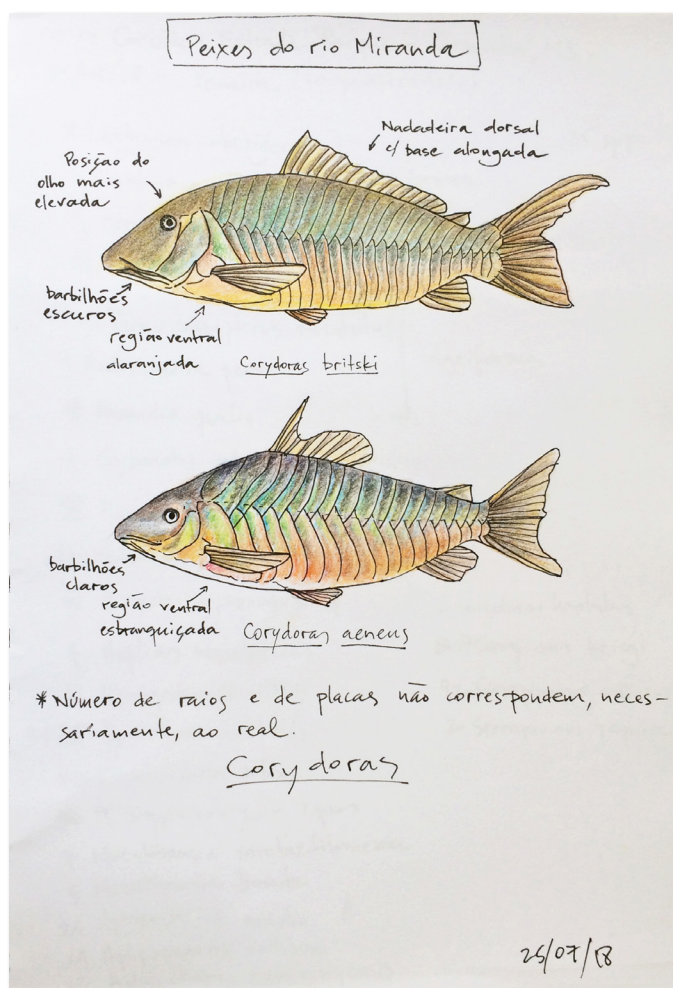 Peixes do rio Miranda
Nadadeira dorsal
c/ base alongada
Posição do
olho mais
elevada
barbilhões
escuros
região ventral
alaranjada
Corydoras britski
barbilhões
claros
região ventral
esbranquiçada
Corydoras aeneus
* Número de raios e de placas não correspondem, neces-
sariamente, ao real.
Corydoras
25/07/18